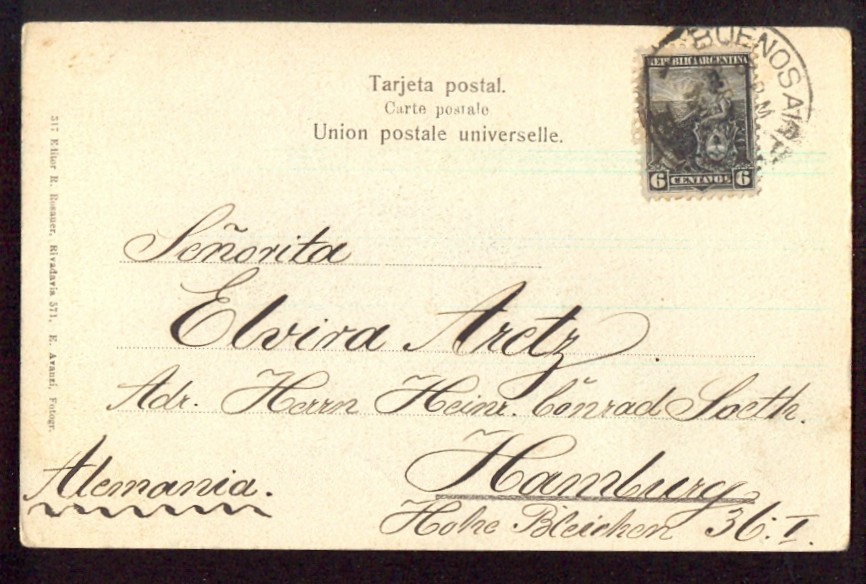 Tarjeta postal.
Carte postale
Union postale universelle.
BUENOS AIRES
REPUBLICA ARGENTINA
6 CENTAVOS 6
Señorita
Elvira Aretz.
Adr. Herrn Heinr. Conrad Soeth.
Hamburg
Alemania.
Hohe Bleichen 36. I.
317 Editor R. Rosauer, Rivadavia 571. E. Avanzi, Fotogr.